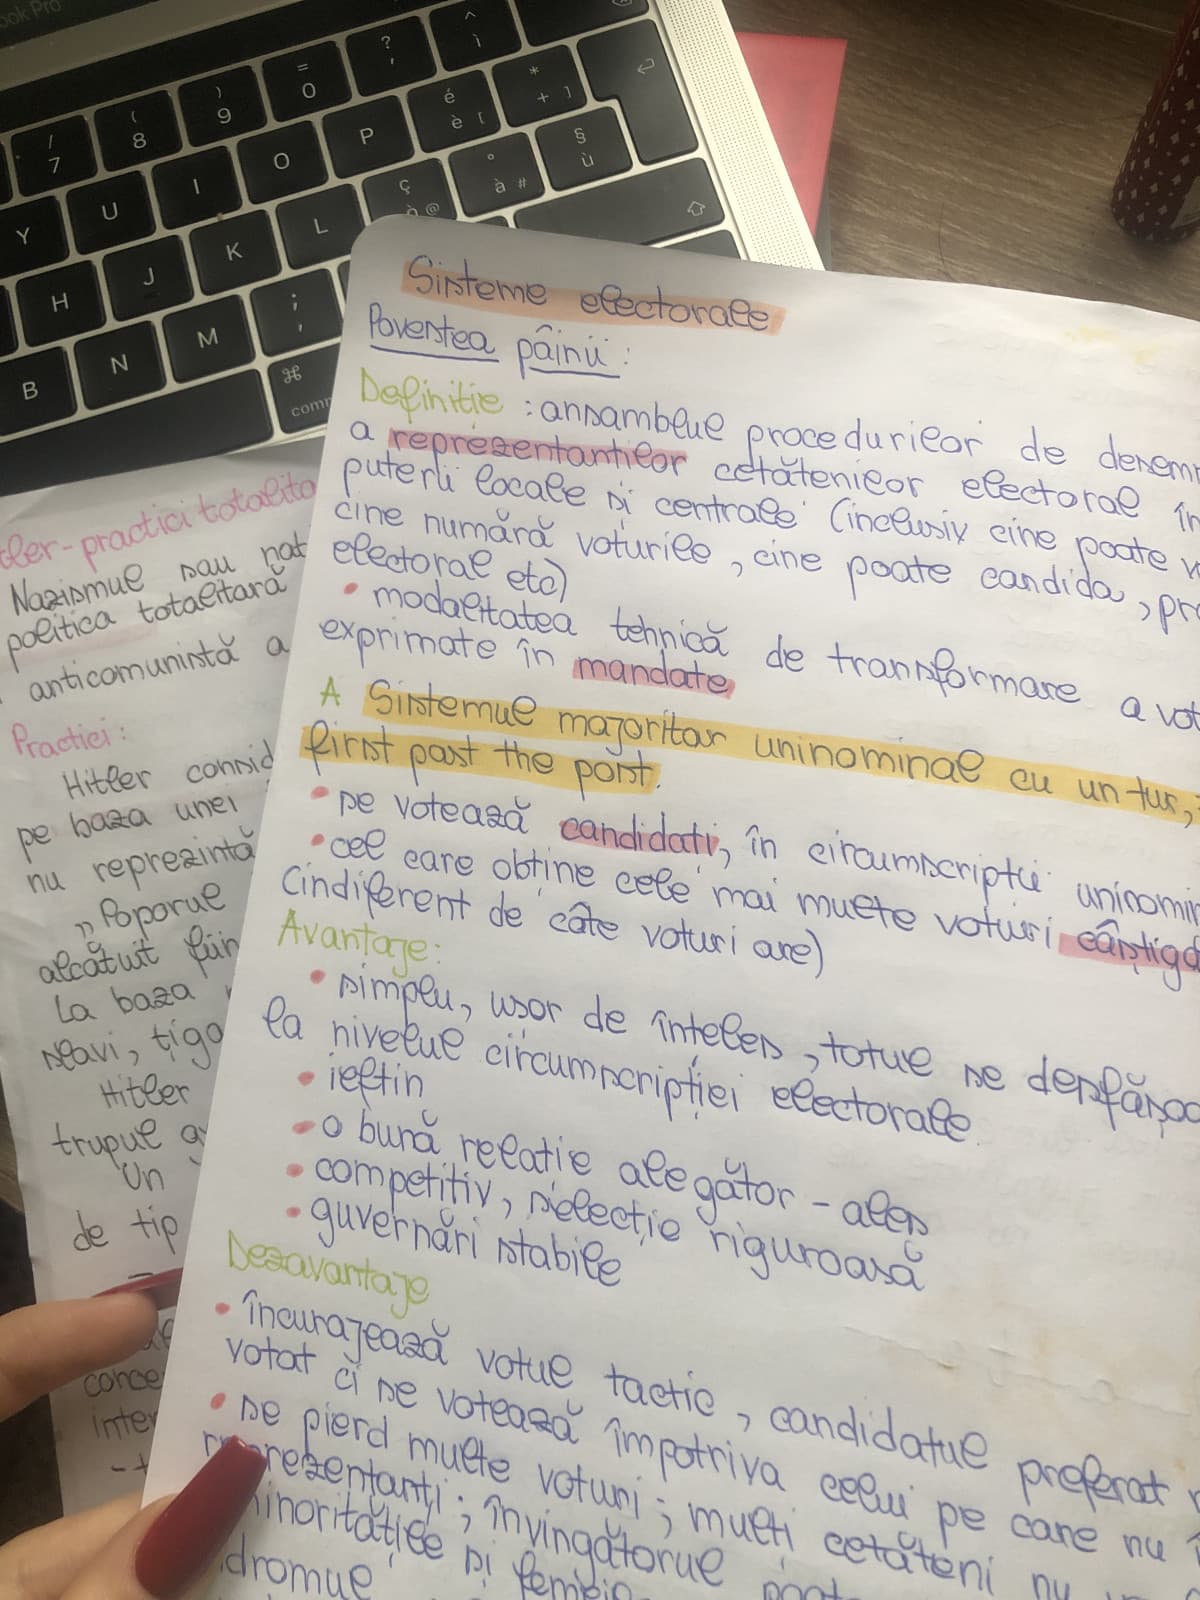 ook Pro
?
'
^
ì
=
0
)
9
(
8
/
7
é
è [
*
+ ]
P
O
I
U
Y
§
ù
°
à #
ç
ò @
L
K
J
H
;
,
M
N
B
⌘
comm
Sisteme electorale
Povestea pâinii :
Definitie : ansamblul procedurilor de desem
a reprezentantilor cetătenilor electoral în
puterii locale si centrale (inclusiv cine poate v
cine numără voturile, cine poate candida, pr
electoral etc)
• modalitatea tehnică de transformare a vot
exprimate în mandate
A Sistemul majoritar uninominal cu un tur,
first past the post.
• se votează candidati, în circumscriptii uninomin
• cel care obține cele mai multe voturi câștigă
(indiferent de câte voturi are)
Avantaje:
• simplu, usor de înteles, totul se desfășoa
la nivelul circumscripției electorale
• ieftin
• o bună relatie alegător - ales
• competitiv, selecție riguroasă
• guvernări stabile
Dezavantaje
• încurajează votul tactic, candidatul preferat n
votat ci se votează împotriva celui pe care nu î
• se pierd multe voturi; mulți cetăteni nu
reprezentanți; învingătorul poat
minoritățile si femei
dromul
tler - practici totalita
Nazismul sau nat
politica totalitară
anticomunistă a
Practici:
Hitler consid
pe baza unei
nu reprezintă
„Poporul
alcătuit fiin
La baza
slavi, țiga
Hitler
trupul
Un
de tip
conce
inter